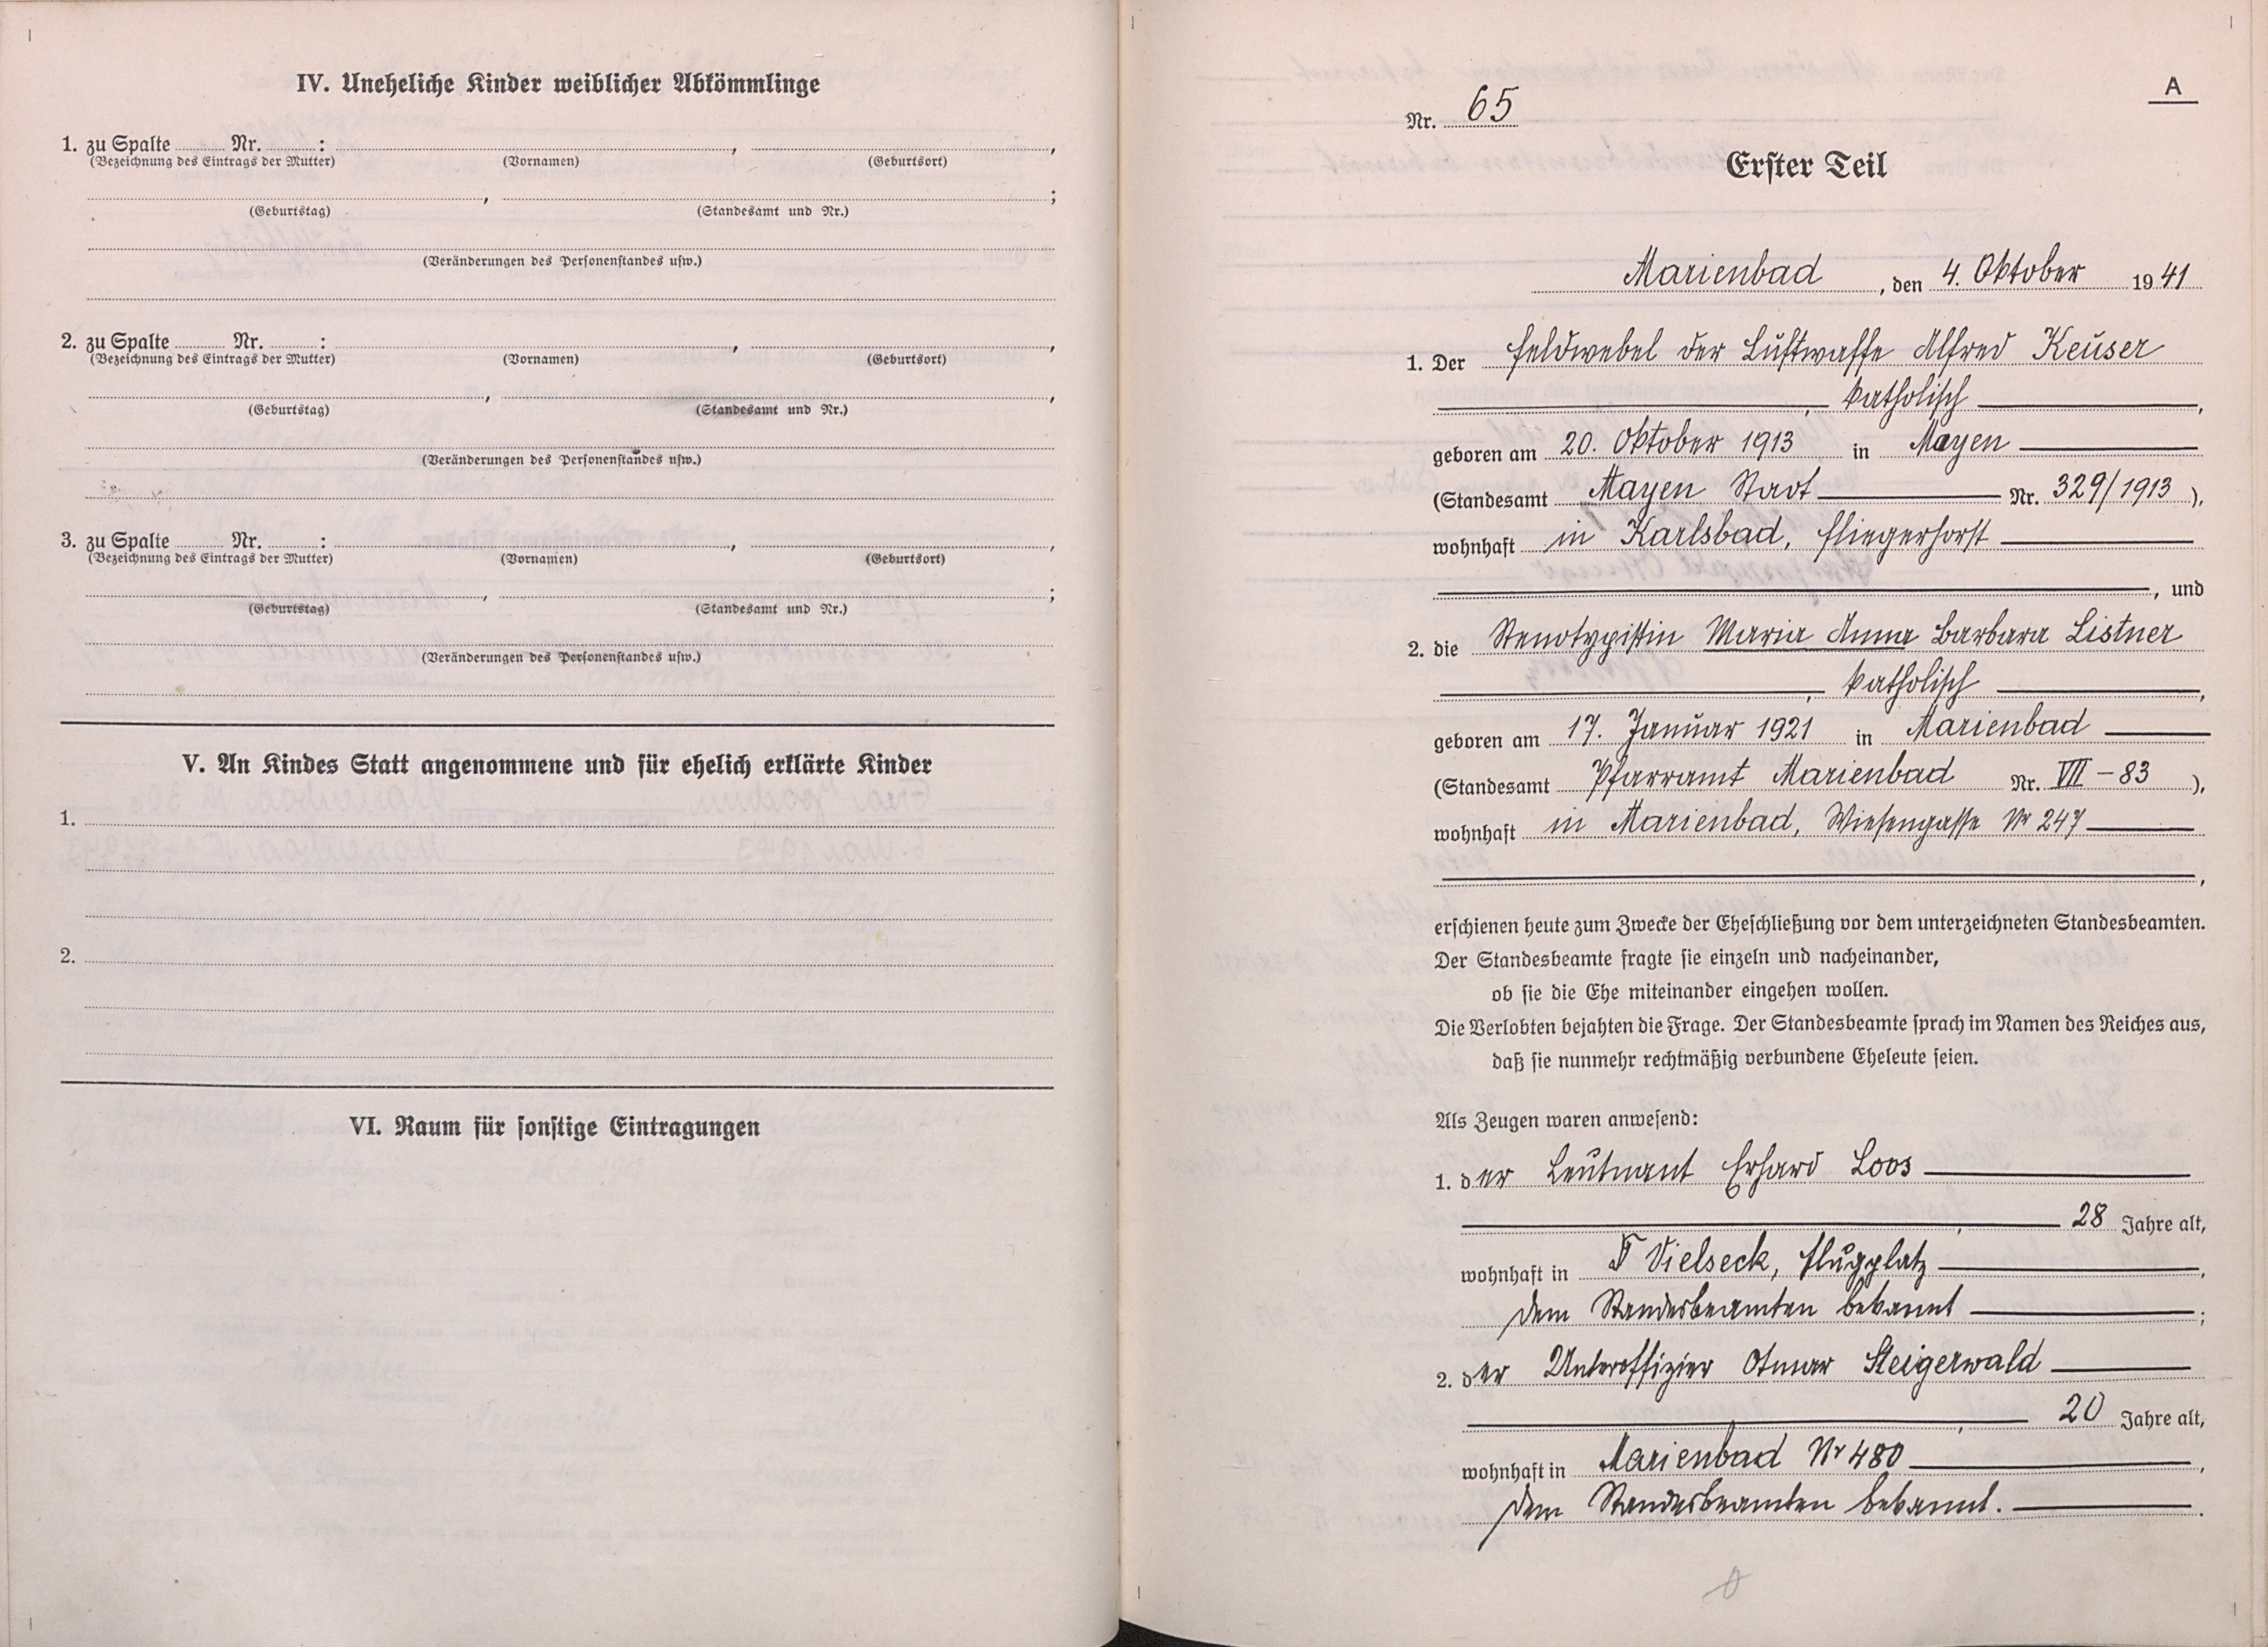 IV. Uneheliche Kinder weiblicher Abkömmlinge
1. zu Spalte Nr. : , ,
(Bezeichnung des Eintrags der Mutter) (Vornamen) (Geburtsort)
, ;
(Geburtstag) (Standesamt und Nr.)
(Veränderungen des Personenstandes usw.)
2. zu Spalte Nr. : , ,
(Bezeichnung des Eintrags der Mutter) (Vornamen) (Geburtsort)
, ,
(Geburtstag) (Standesamt und Nr.)
(Veränderungen des Personenstandes usw.)
3. zu Spalte Nr. : , ,
(Bezeichnung des Eintrags der Mutter) (Vornamen) (Geburtsort)
, ;
(Geburtstag) (Standesamt und Nr.)
(Veränderungen des Personenstandes usw.)
V. An Kindes Statt angenommene und für ehelich erklärte Kinder
1.
2.
VI. Raum für sonstige Eintragungen
A
Nr. 65
Erster Teil
Marienbad, den 4. Oktober 1941
1. Der Feldwebel der Luftwaffe Alfred Keuser
, katholisch ,
geboren am 20. Oktober 1913 in Mayen
(Standesamt Mayen Stadt Nr. 329/1913),
wohnhaft in Karlsbad, Fliegerhorst
, und
2. die Stenotypistin Maria Anna Barbara Listner
, katholisch ,
geboren am 17. Januar 1921 in Marienbad
(Standesamt Pfarramt Marienbad Nr. VII - 83),
wohnhaft in Marienbad, Wiesengasse Nr 247
,
erschienen heute zum Zwecke der Eheschließung vor dem unterzeichneten Standesbeamten.
Der Standesbeamte fragte sie einzeln und nacheinander,
ob sie die Ehe miteinander eingehen wollen.
Die Verlobten bejahten die Frage. Der Standesbeamte sprach im Namen des Reiches aus,
daß sie nunmehr rechtmäßig verbundene Eheleute seien.
Als Zeugen waren anwesend:
1. der Leutnant Erhard Loos
, 28 Jahre alt,
wohnhaft in Vielseck, Flugplatz ,
dem Standesbeamten bekannt ;
2. der Unteroffizier Otmar Steigerwald
, 20 Jahre alt,
wohnhaft in Marienbad Nr 480 ,
dem Standesbeamten bekannt. .